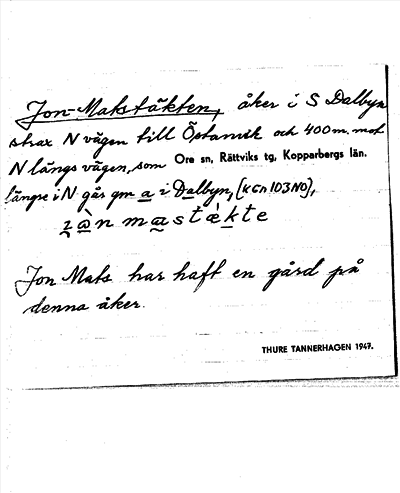 Jon-Matstäkten, åker i S Dalbyn
strax N vägen till Östanvik och 400 m. mot
N längs vägen, som Ore sn, Rättviks tg, Kopparbergs län.
längre i N går gm a i Dalbyn, (KGn 103 NO),
Jon Mats har haft en gård på
denna åker.
THURE TANNERHAGEN 1947.